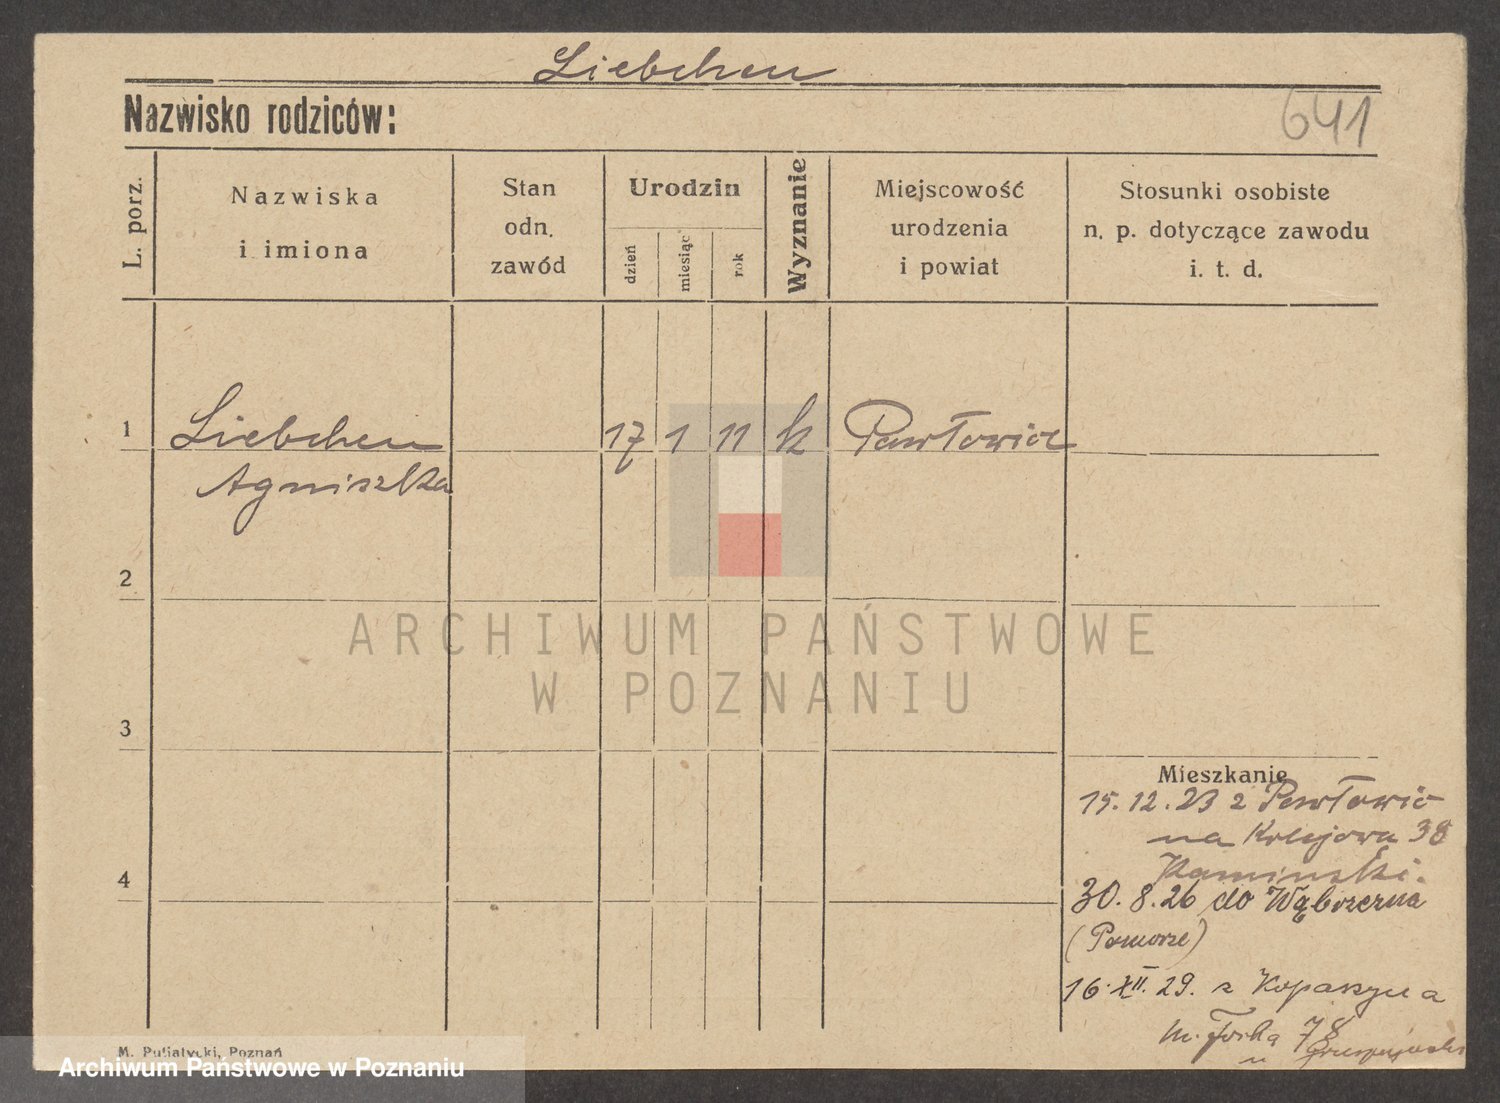 Liebchen
Nazwisko rodziców:
641
L. porz.
Nazwiska
i imiona
Stan
odn.
zawód
Urodzin
dzień
miesiąc
rok
Wyznanie
Miejscowość
urodzenia
i powiat
Stosunki osobiste
n. p. dotyczące zawodu
i. t. d.
1
Liebchen
Agniszka
17 1 11 k Pawłowice
2
ARCHIWUM PAŃSTWOWE
W POZNANIU
3
Mieszkanie
15. 12. 23 z Pawłowic
na Kolejowa 38
Kamiński.
4
30. 8. 26 do Wąbrzezna
(Pomorze)
16. XII. 29. z Kopaszyna
78
M. Putiatycki, Poznań
Archiwum Państwowe w Poznaniu